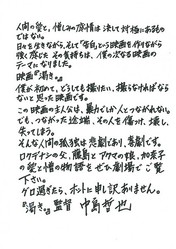 人間の愛と、憎しみの感情は決して対極にあるもの
ではない。
日々を生きながら、そして『告白』という映画を作りながら
強く感じたその気持ちは、僕の次なる映画の
テーマになりました。
映画『渇き。』
僕が初めて、どうしても撮りたい、撮らなければなら
ないと思った映画です。
この映画の主人公は、暴力でしか人とつながれない。
でも、つながった途端、その人を傷つけ、壊し、
失ってしまう。
そんな人間の孤独は悲劇であり、喜劇です。
ロクデナシの父、藤島とアクマの娘、加奈子
の愛と憎の物語をぜひ劇場でご覧
下さい。
グロ過ぎたら、ホントに申し訳ありません。
『渇き。』監督 中島哲也